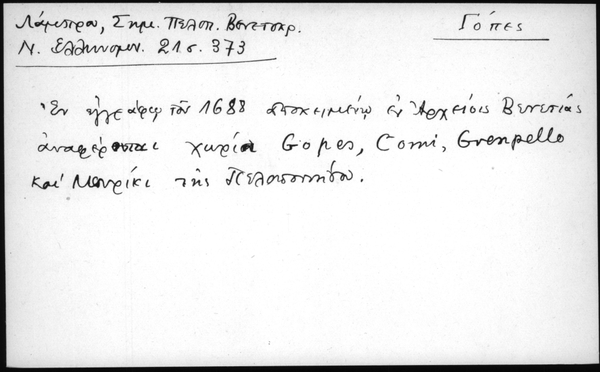 Λάμπρου, Σημ. Πελοπ. Βενετοκρ.
Ν. Ελληνομν. 21 σ. 373
Γόπες
Ἐν ἐγγράφῳ τοῦ 1688 ἀποκειμένῳ ἐν Ἀρχείοις Βενετίας
ἀναφέρονται χωρία Gopes, Comi, Grenpello
καὶ Μουρίκι τῆς Πελοποννήσου.